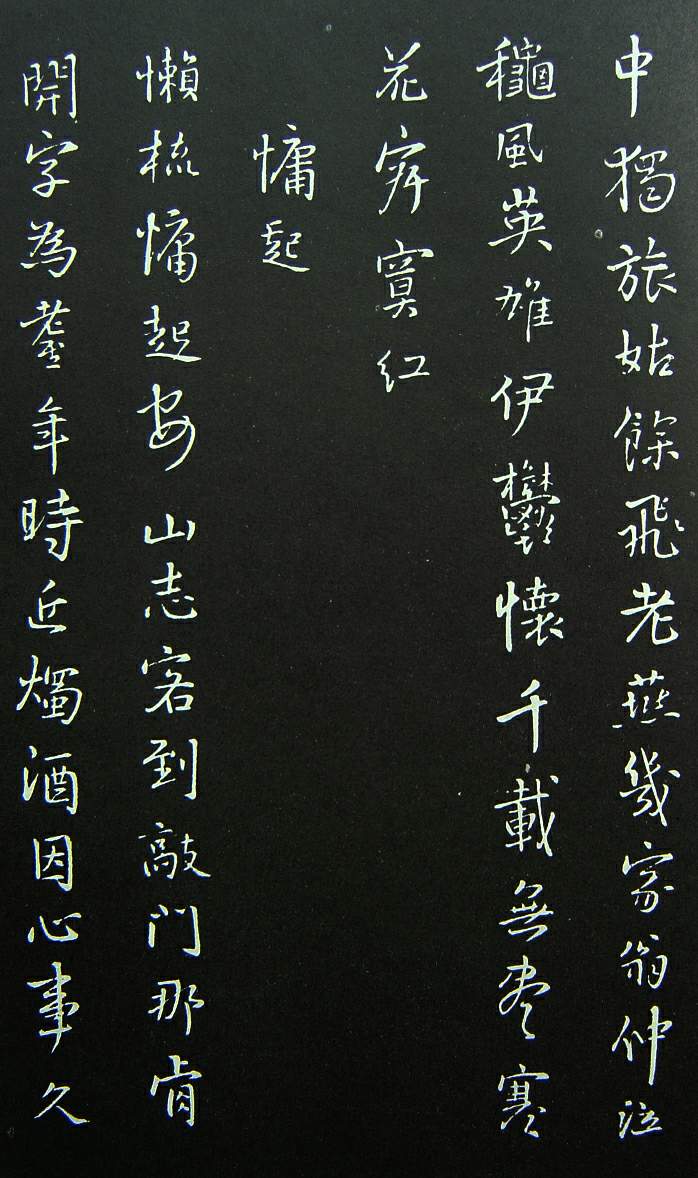 中獨旅姑餘飛老燕幾家翁仲泣
穐風英雄伊鬱懷千載無盡寒
花寂寞紅
慵起
懶梳慵起安山志客到敲門那肯
開字為耋年時近燭酒因心事久